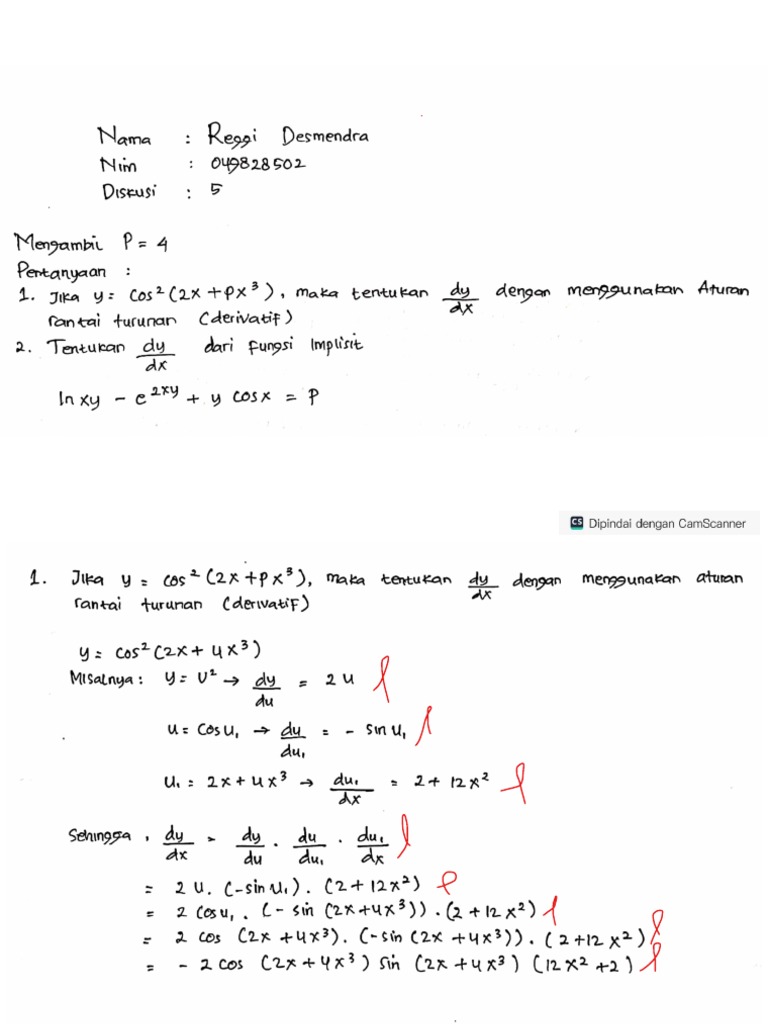 Nama : Reggi Desmendra
Nim : 049828502
Diskusi : 5
Mengambil P = 4
Pertanyaan :
1. Jika y = cos²(2x + px³), maka tentukan dy/dx dengan menggunakan Aturan
rantai turunan (derivatif)
2. Tentukan dy/dx dari fungsi Implisit
ln xy - e^2xy + y cos x = P
CS Dipindai dengan CamScanner
1. Jika y = cos²(2x + px³), maka tentukan dy/dx dengan menggunakan aturan
rantai turunan (derivatif)
y = cos²(2x + 4x³)
Misalnya : y = U² → dy/du = 2u
u = cos u₁ → du/du₁ = - sin u₁
u₁ = 2x + 4x³ → du₁/dx = 2 + 12x²
Sehingga, dy/dx = dy/du . du/du₁ . du₁/dx
= 2u. (-sin u₁). (2 + 12x²)
= 2 cos u₁. (- sin (2x + 4x³)). (2 + 12x²)
= 2 cos (2x + 4x³). (-sin (2x + 4x³)). (2 + 12x²)
= - 2 cos (2x + 4x³) sin (2x + 4x³) (12x² + 2)